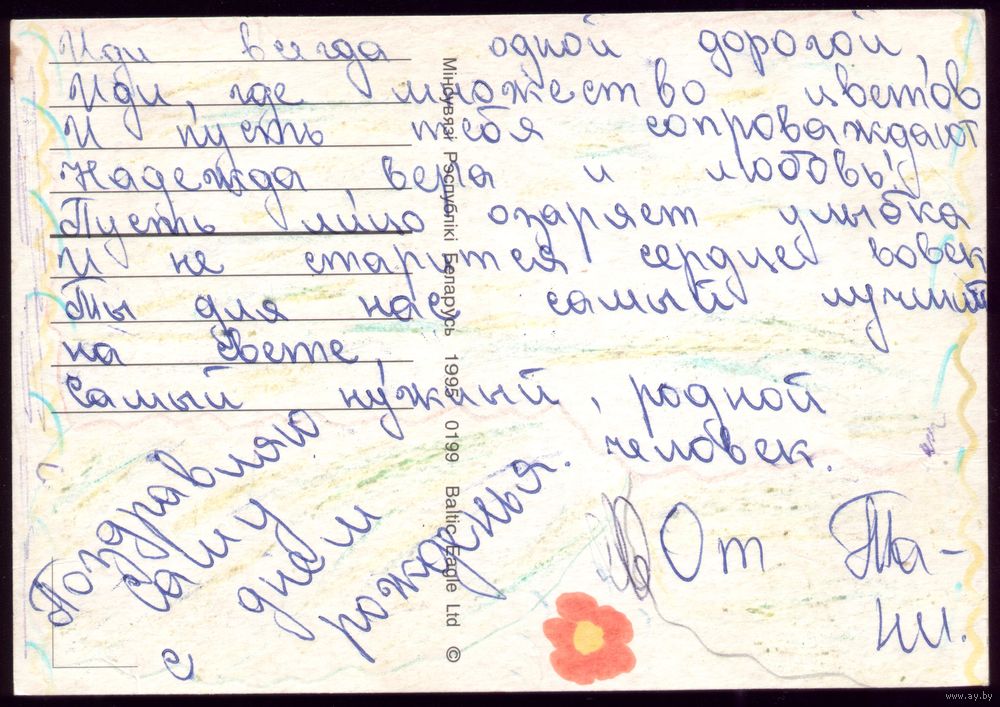 Иди всегда одной дорогой,
Иди, где множество цветов
И пусть тебя сопроваждают
Надежда, вера и любовь!
Пусть лицо озаряет улыбка
И не старится сердце вовек
Ты для нас самый лучший
на свете,
Самый нужный, родной
человек.
Поздравляю
Сашу
с днем
рожденья.
От Та-
ни.
Мінсувязі Рэспублікі Беларусь 1995 0199 Baltic Eagle Ltd ©
www.ay.by